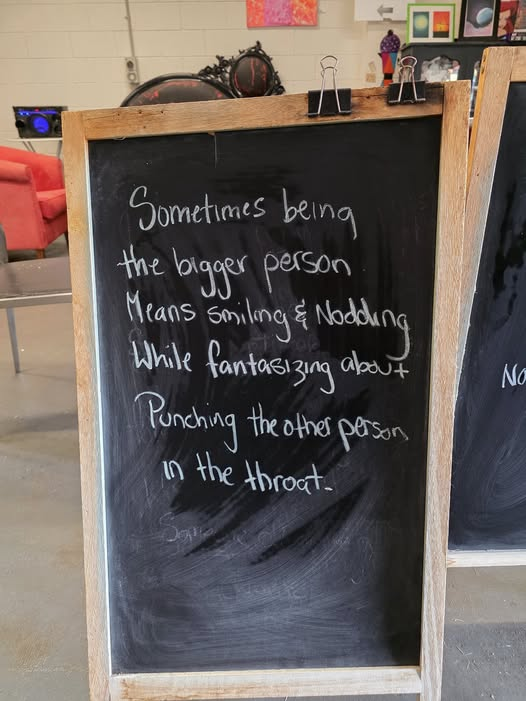 Sometimes being
the bigger person
Means smiling & Nodding
While fantasizing about
Punching the other person
in the throat.
No